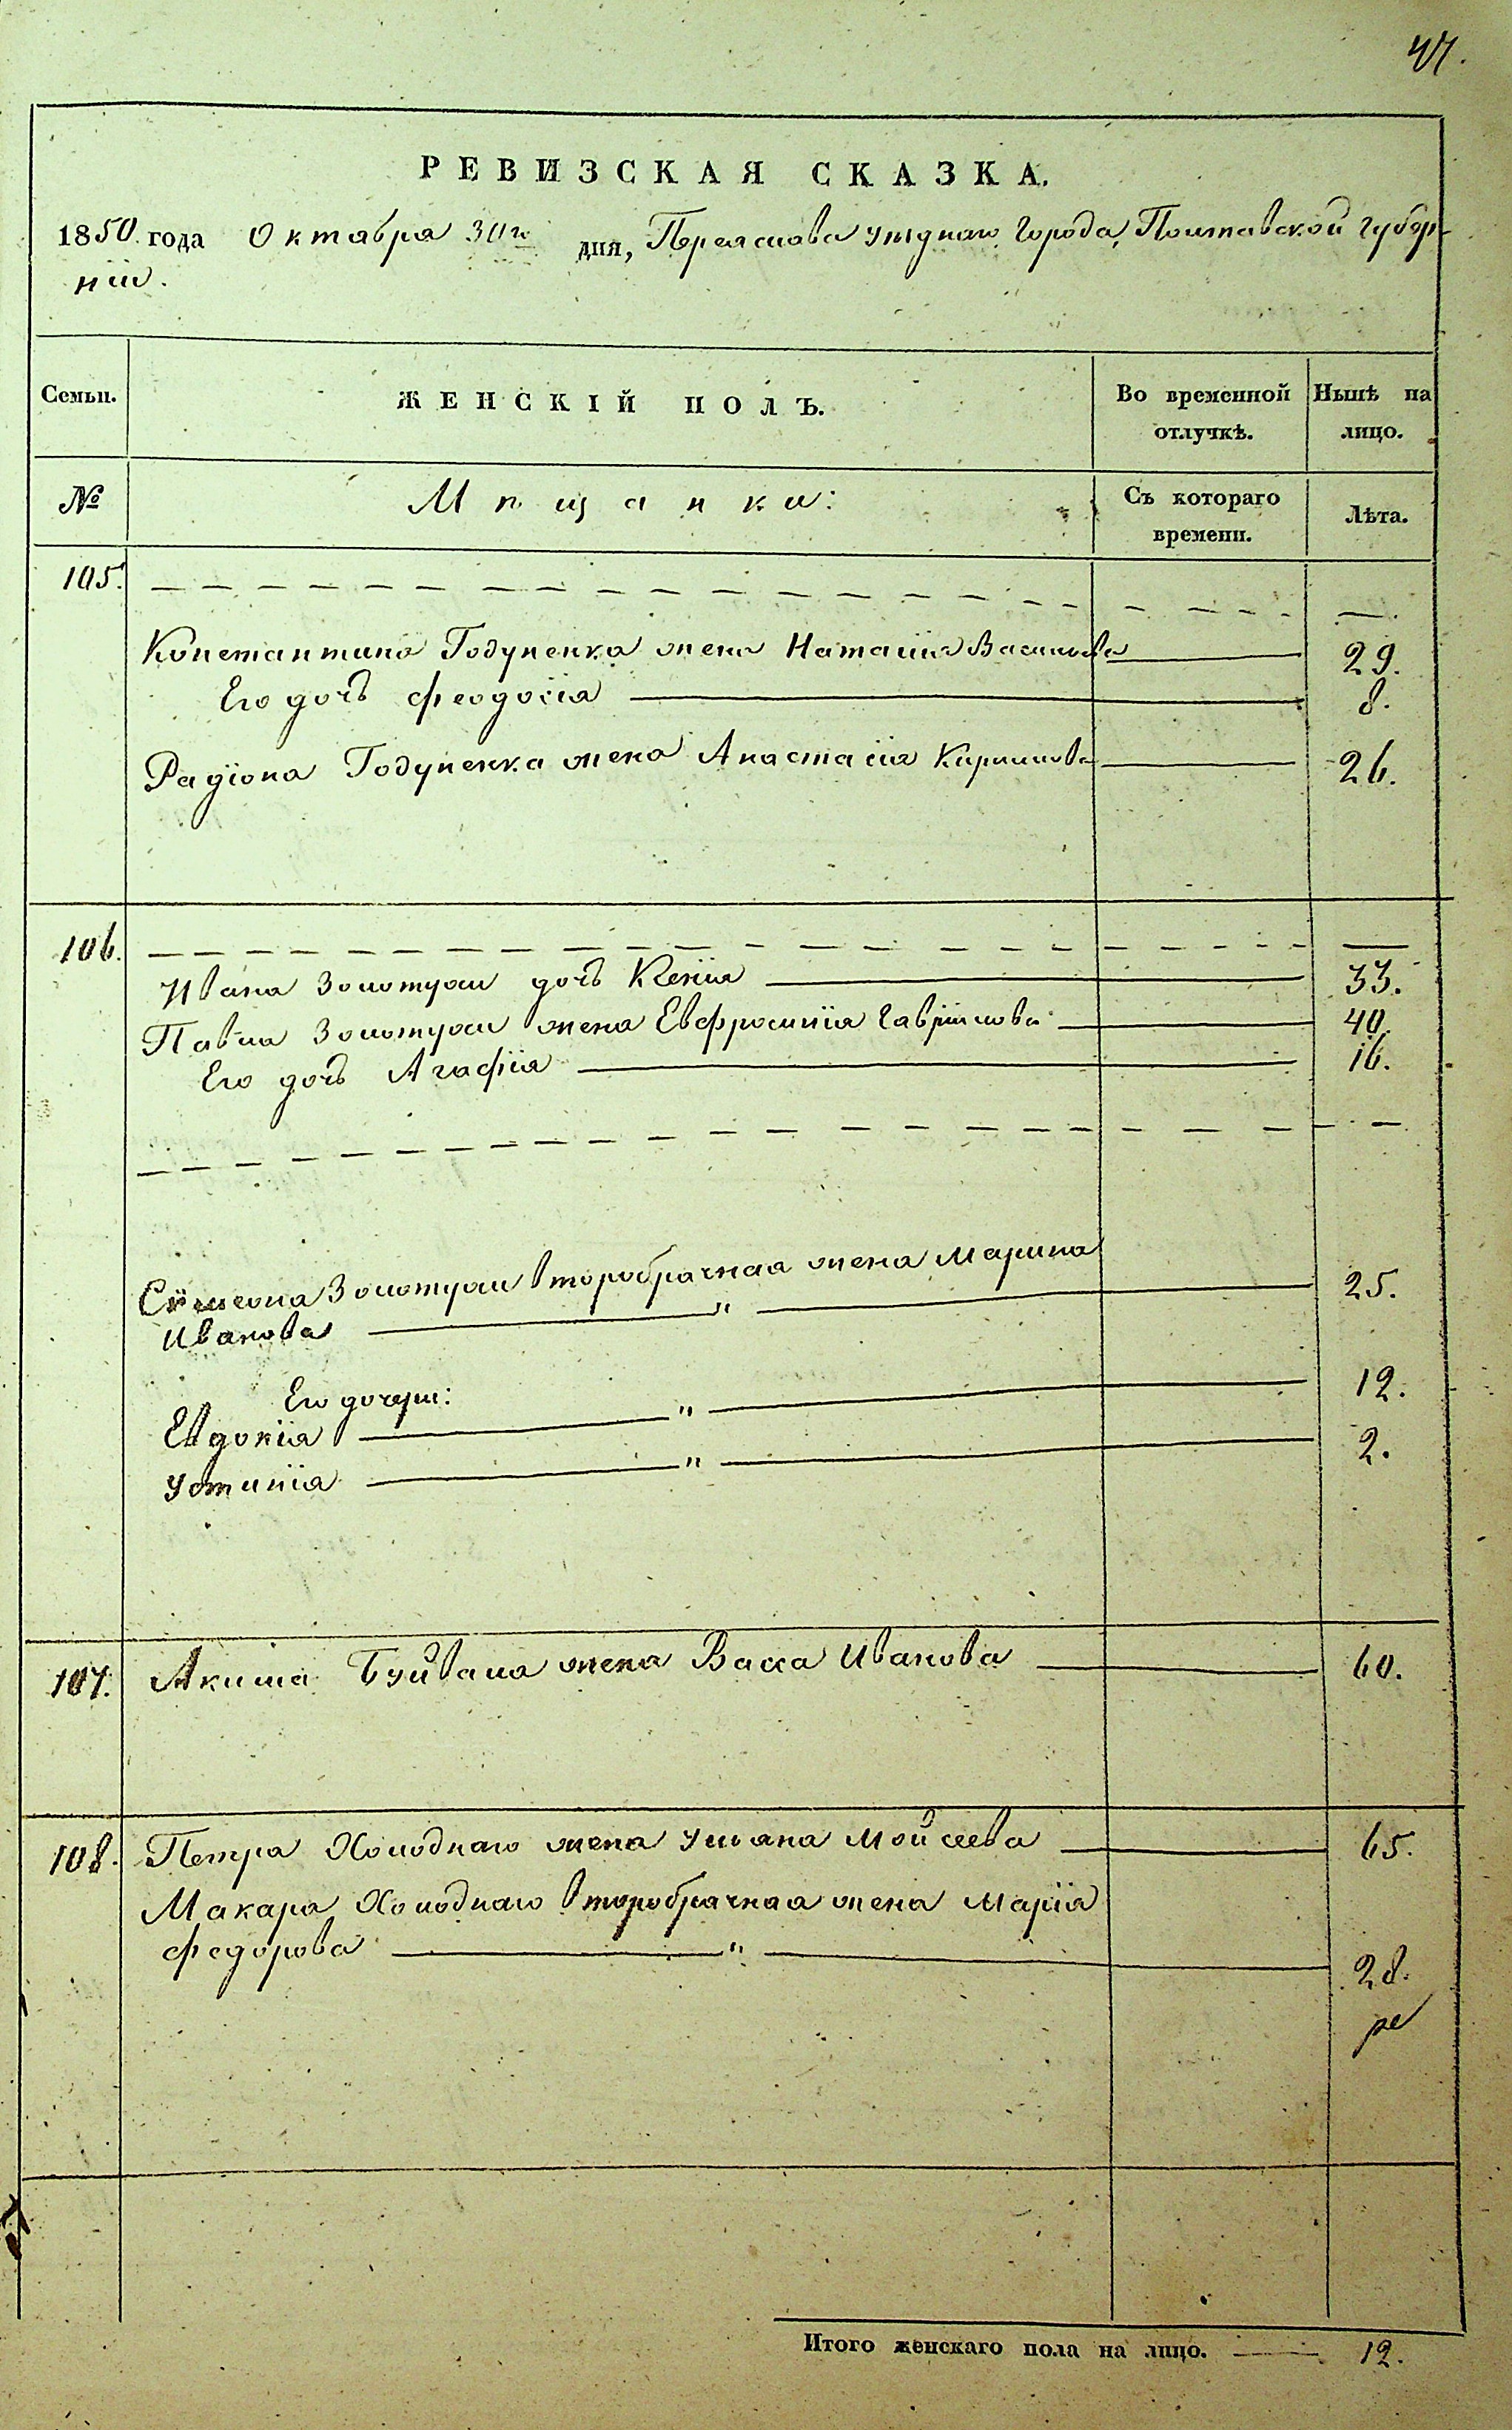 47.
РЕВИЗСКАЯ СКАЗКА.
1850. года Октября 30го дня, Переяслова уѣзднаго города, Полтавской губер-
нiи.
Семьи. ЖЕНСКІЙ ПОЛЪ. Во временной отлучкѣ. Нынѣ на лицо.
№ Мѣщанки: Съ котораго времени. Лѣта.
105. — — — — —.
Константина Годуненка жена Наталiя Васильева — 29.
Его дочь Феодосiя — 8.
Радiона Годуненка жена Анастасiя Кирилова — 26.
106. — — — — —
Ивана Золотухи дочь Ксенiя — 33.
Павла Золотухи жена Евфросинiя Гаврiилова — 40.
Его дочь Агафiя — 16.
— — — — —
Симеона Золотухи второбрачная жена Марина
Иванова — " — 25.
Его дочери:
Евдокiя — " — 12.
Устинiя — " — 2.
107. Акима Буйвала жена Васса Иванова — 60.
108. Петра Холоднаго жена Ульяна Мойсеева — 65.
Макара Холоднаго второбрачная жена Марiя
Федорова — " — 28.
Итого женскаго пола на лицо. — 12.